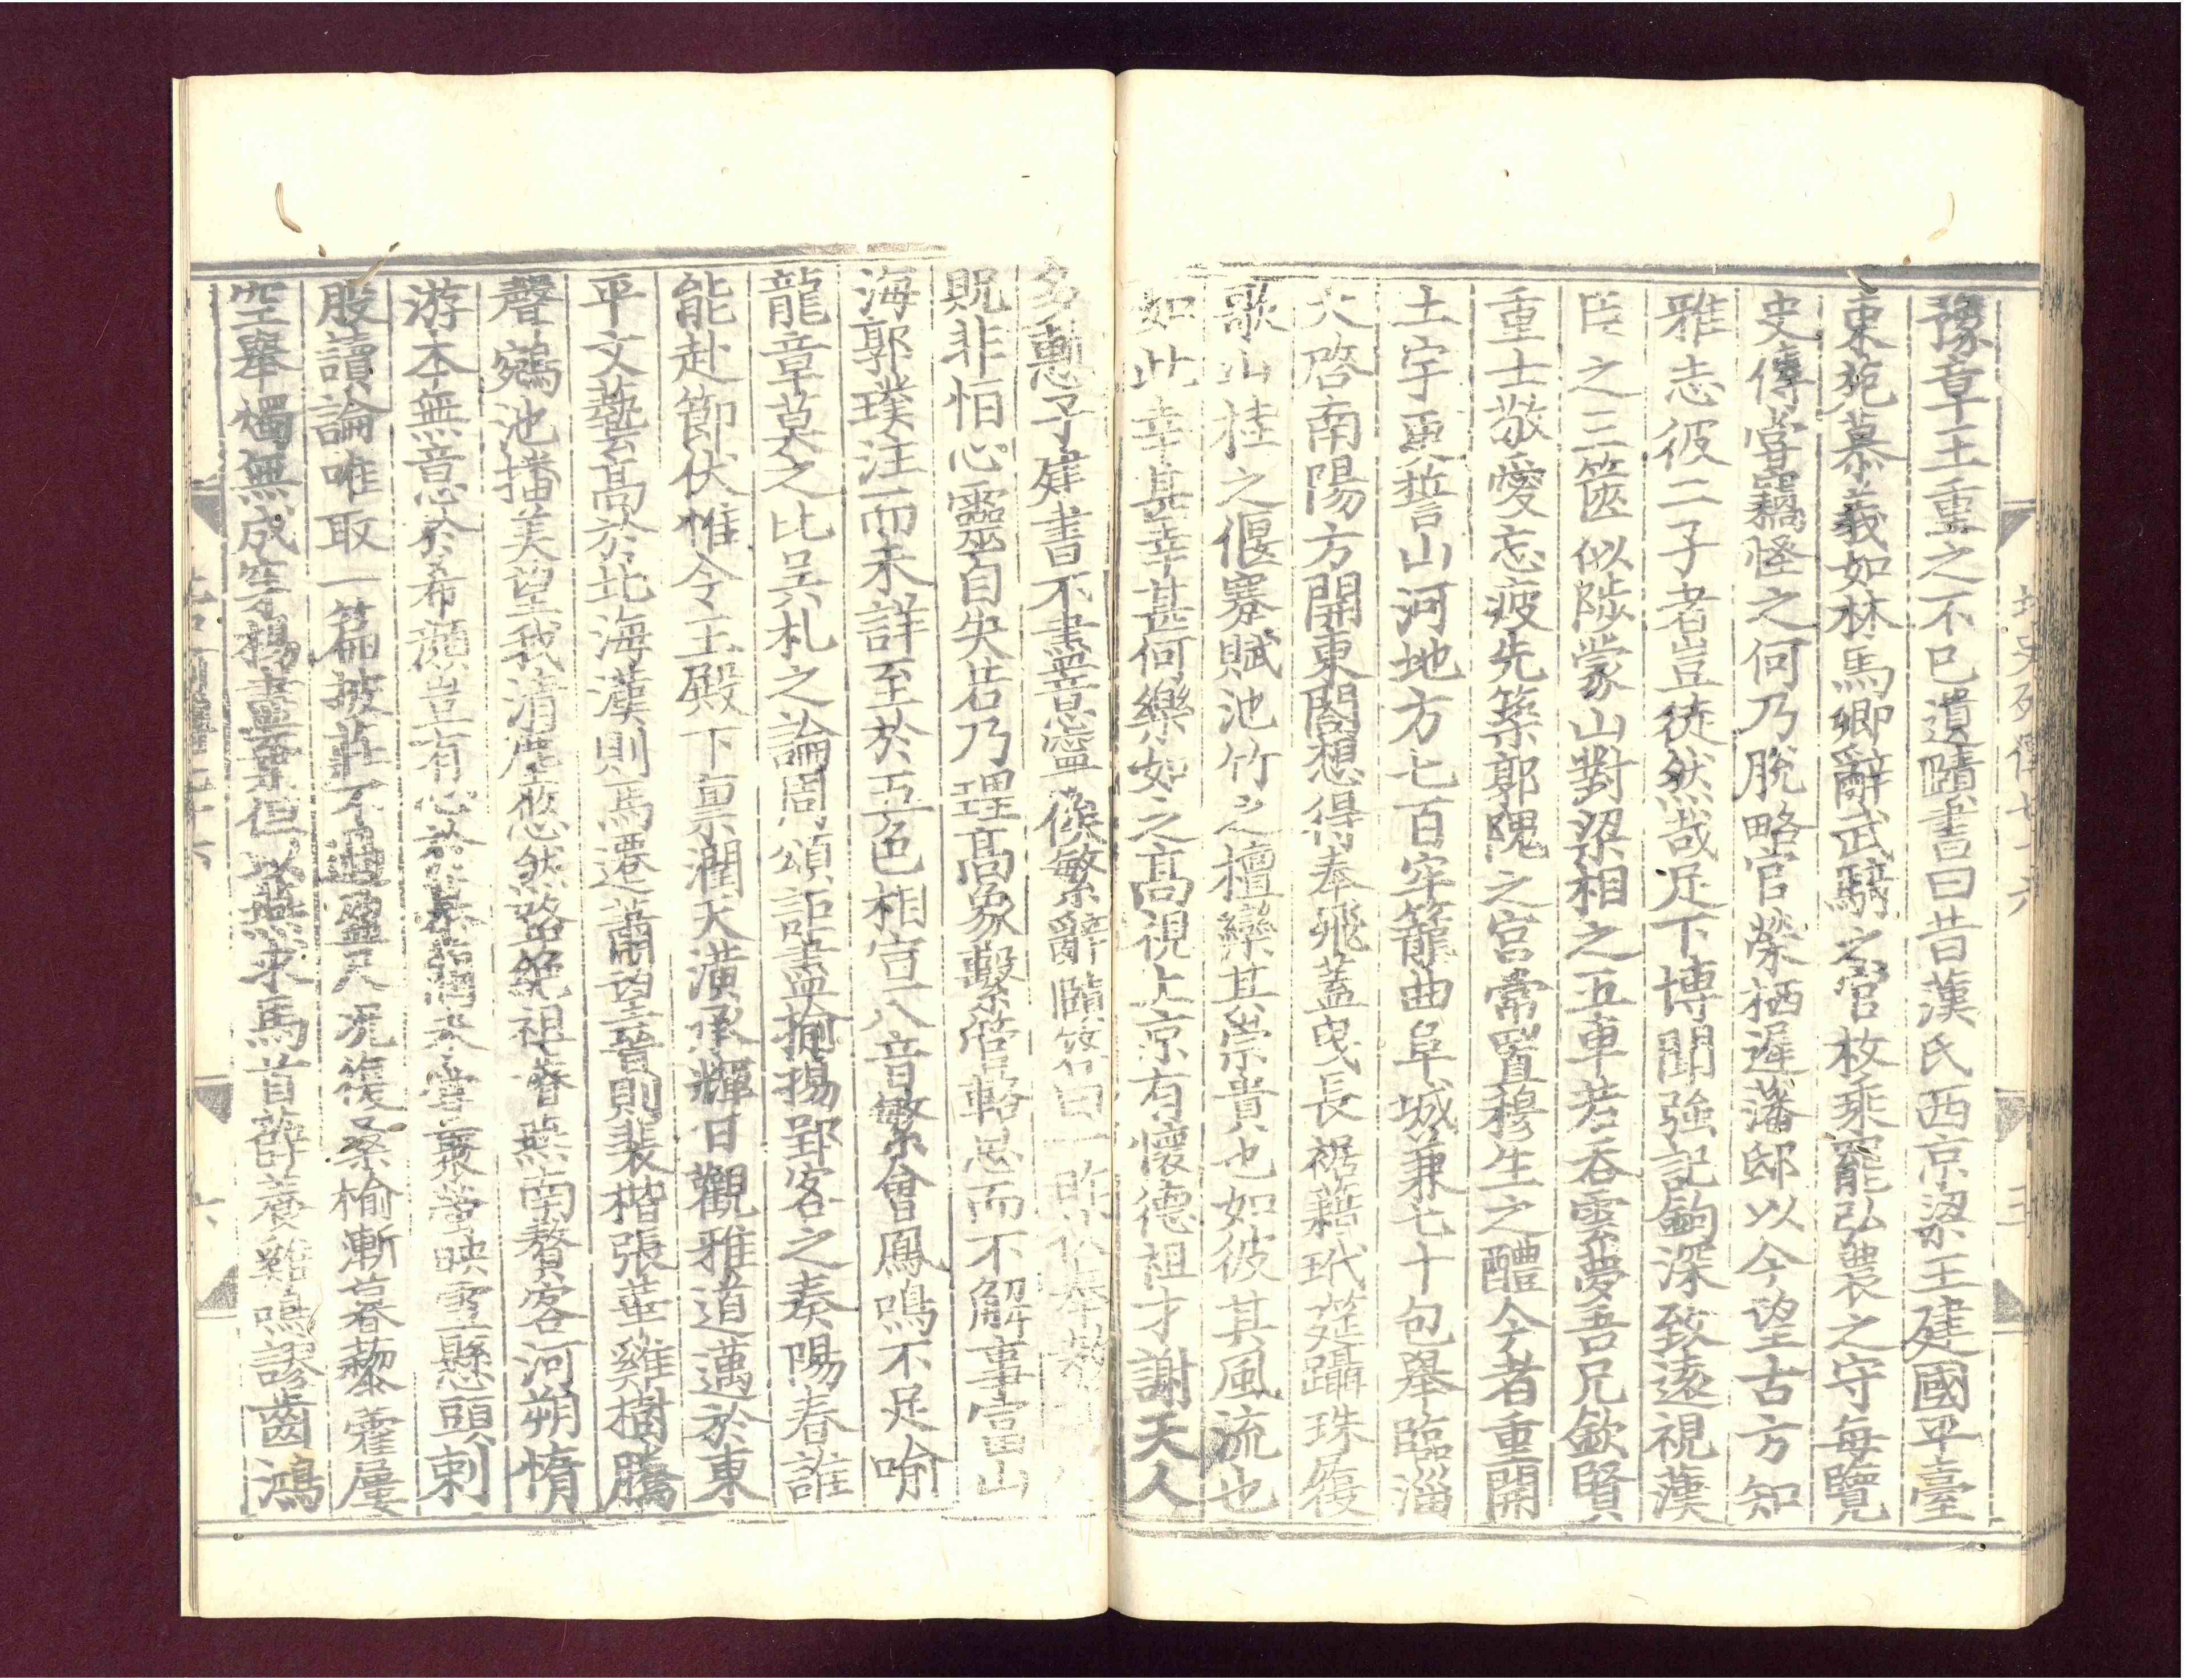 豫章王重之不已遺賾書曰昔漢氏西京梁王建國平臺
東苑慕義如林馬卿辭武騎之官枚乘罷弘農之守每覽
史傳嘗竊怪之何乃脫略官榮栖遲藩邸以今望古方知
雅志彼二子者豈徒然哉足下博聞強記鉤深致遠視漢
臣之三篋似陟蒙山對梁相之五車若吞雲夢吾兄欽賢
重士敬愛忘疲先築郭隗之宮常置穆生之醴今者重開
土宇更誓山河地方七百牢籠曲阜城兼七十包舉臨淄
大啓南陽方開東閤想得奉飛蓋曳長裾藉玳筵躡珠履
歌山桂之偃蹇賦池竹之檀欒其崇貴也如彼其風流也
如此幸甚幸甚何樂如之高視上京有懷德祖才謝天人
多慙子建書不盡意寧俟繁辭賾答曰一昨伏奉教
貺非恒心靈自失若乃理高象繫管輅思而不解事富山
海郭璞注而未詳至於五色相宣八音繁會鳳鳴不足喻
龍章莫之比吳札之論周頌詎盡揄揚郢客之奏陽春誰
能赴節伏惟令王殿下稟潤天潢承輝日觀雅道邁於東
平文藝高於北海漢則馬遷蕭望晉則裴楷張華雞樹騰
聲鵷池播美望我清塵悠然路絕祖濬燕南贅客河朔惰
游本無意於希顏豈有心於慕藺未嘗聚螢映雪懸頭刺
股讀論唯取一篇披莊不過盈尺況復桑榆漸暮藜藿屢
空舉燭無成穿楊盡棄但以燕求馬首薛養雞鳴謬齒鴻
北史列傳七十六